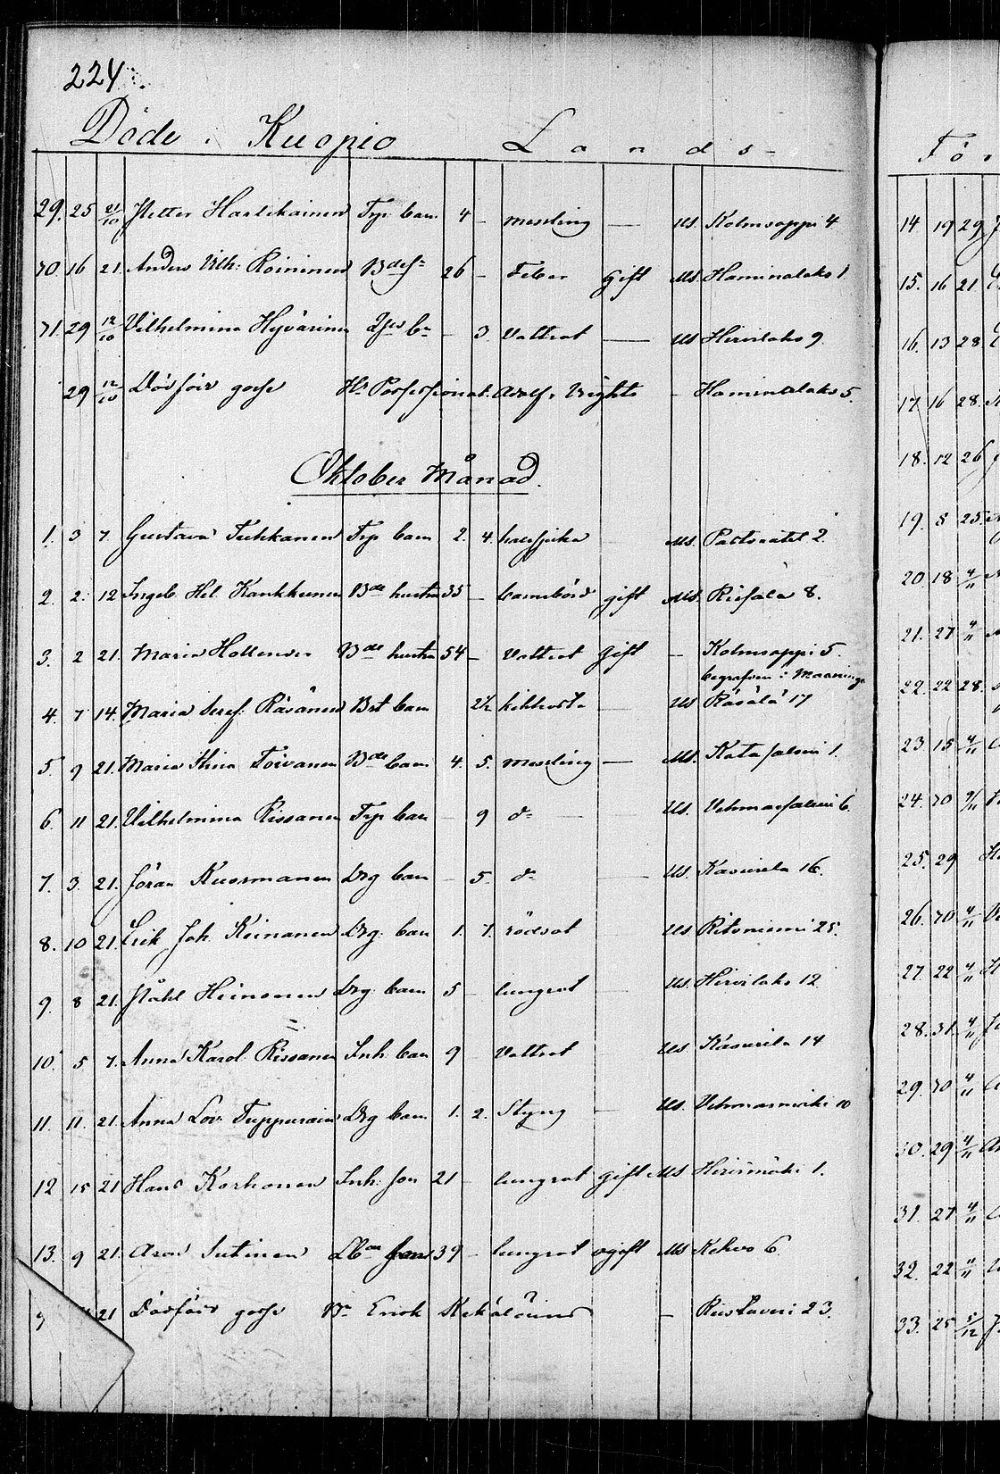 224
Döde i Kuopio Lands-
29. 25 21/10 Petter Hartikainen Trp barn 4 - messling - Us. Kolmisoppi 4
30 16 21. Anders Vilh: Roininen Bdes= 26 - Feber Gift Us. Haminalaks 1
31. 29 12/10 Vilhelmina Hyvärinen - 3. Vattsot - Us Hirvilaks 9.
29 12/10 Dödföd gosse Adolf v Wrights - Haminalaks 5.
Oktober Månad.
1. 3 7. Gustava Tuhkanen Trp barn 2. 4. halssjuka Us. Pastoratet 2.
2. 2. 12 Ingeb. Hel. Kaukkunen Bde hustru 35 - barnsbörd gift Us. Riesala 8.
3. 2 21. Maria Bde hustru 54 - Vattsot Gift - Kolmisoppi 5
begrafven i Maaninga
4. 7 14. Maria Josef. Räsänen Bst barn 2½ kikhosta - Us Räsälä 17
5. 9 21. Maria Stina Toivanen Bde barn 4. 5. messling - Us. Kotasalmi 1.
6. 11 21. Vilhelmina Rissanen Trp barn - 9 do - Us. Vehmasalmi 6.
7. 3. 21. Jöran Kuosmanen Drg barn - 5. do - Us. Kasurila 16.
8. 10 21. Erik Joh. Keinanen Drg. barn 1. 7. rödsot Us Ritoniemi 25.
9. 8 21. Påhl Heinonen Drg. barn 5 - lungsot - Us. Hirvilaks 12
10. 5 7. Anna Karol. Rissanen Inh. barn 9 Vattsot Us Kasurila 14
11. 11. 21. Anna Lov. Tuppurain Drg barn 1. 2. Styng - Us. Vehmasmäki 10
12 15 21 Hans Korhonen Inh. son 21 - lungsot gift Us Hirvimäki 1.
13. 9 21. Aron Sutinen 39 - lungsot ogift Us Kehvo 6.
21 Dödföd gosse Bn Erick Kekäläinens - Ruistaveri 23.
För
14. 19 29
15. 16 21.
16. 13 28.
17. 16 28.
18. 12 26
19. 8 25.
20 18 4/11
21. 27 4/11
22. 22 28.
23 15 4/11
24. 30 9/11
25. 29
26. 30 4/11
27. 22 4/11
28. 31. 4/11
29. 30 4/11
30. 29 4/11
31. 27 4/11
32. 22 4/11
33. 25 2/12